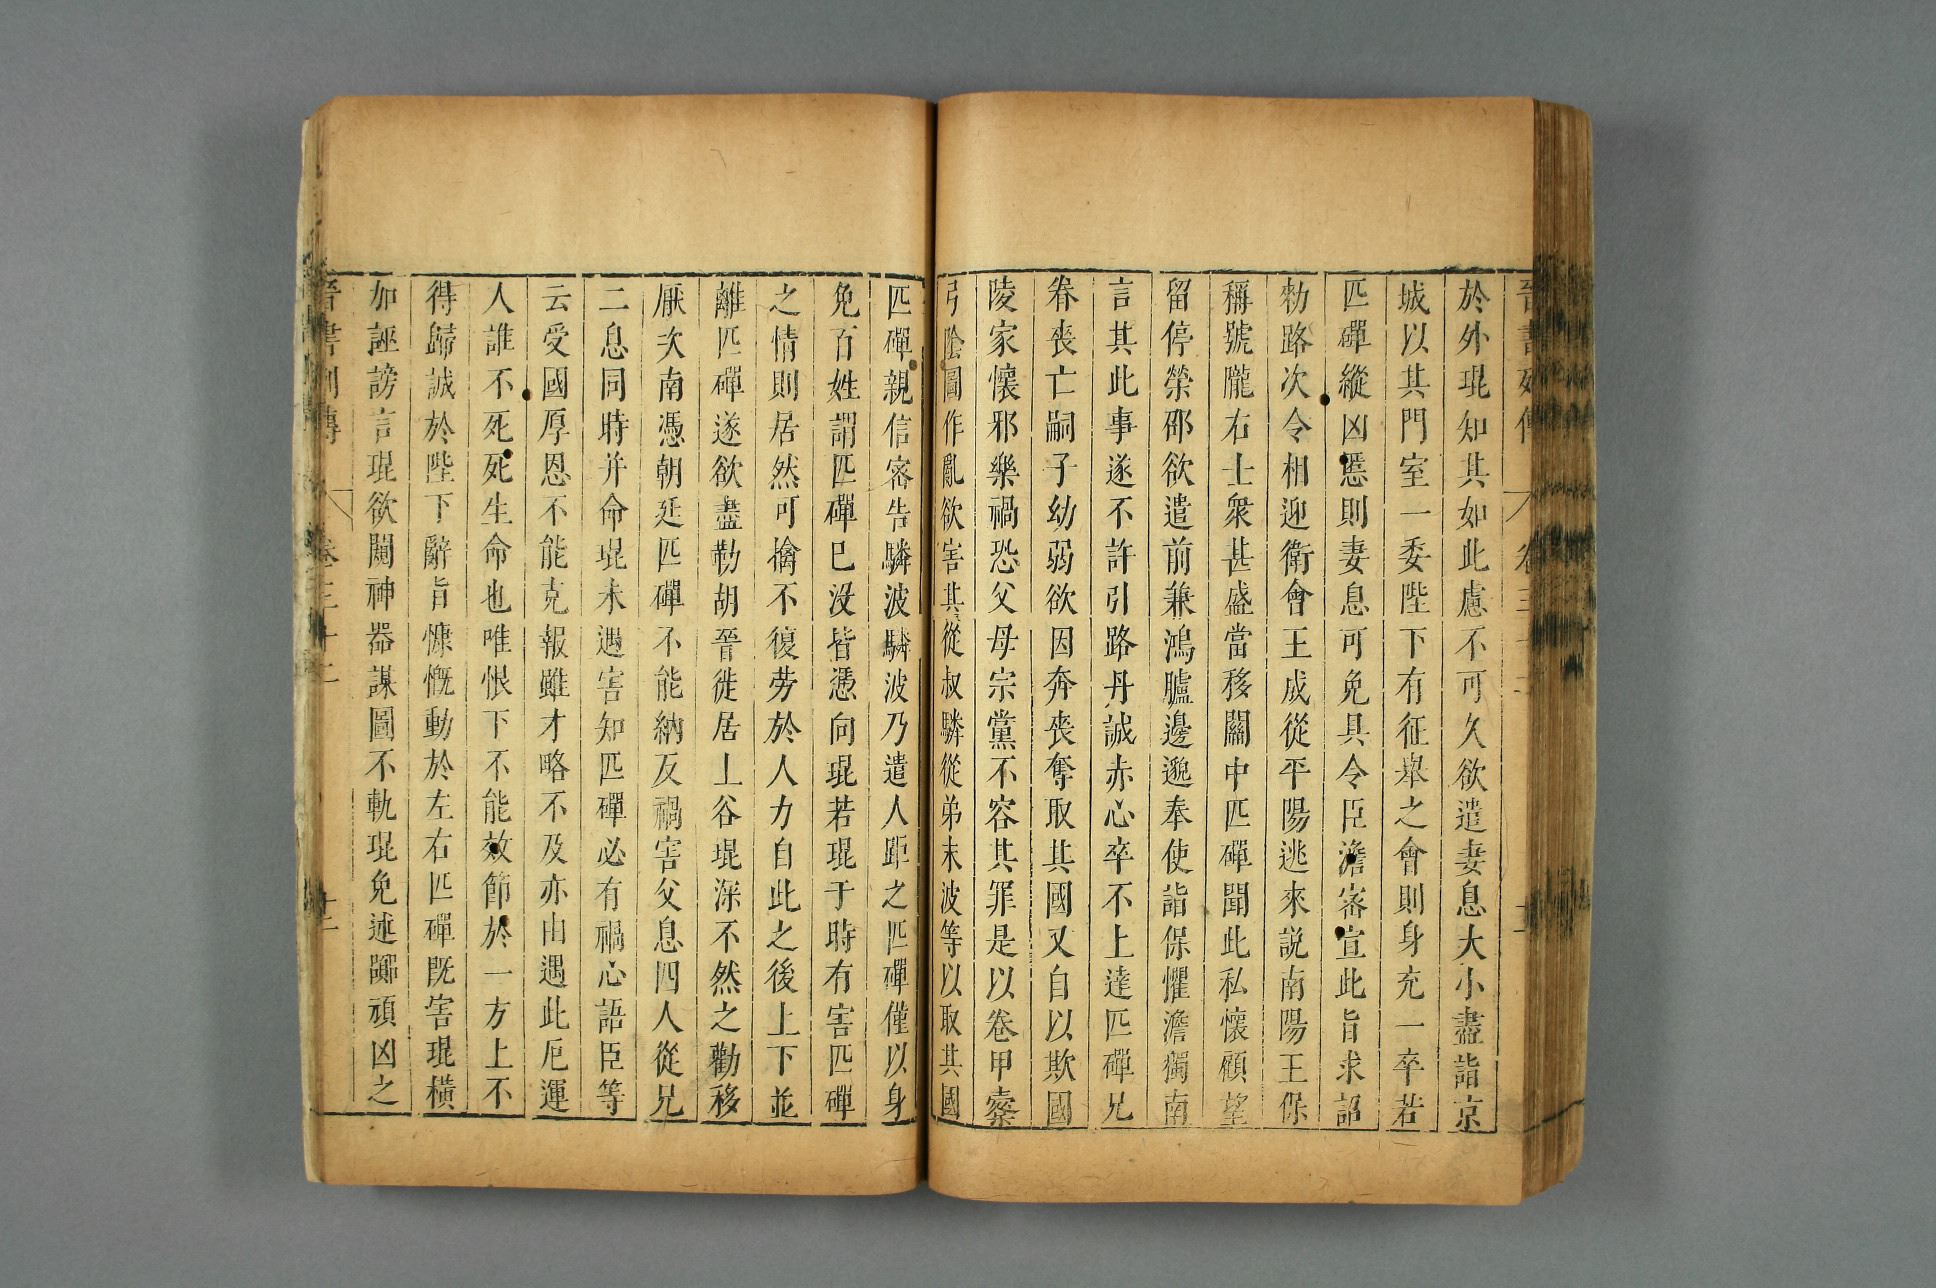 晉書列傳 卷三十二
於外琨知其如此慮不可久欲遣妻息大小盡詣京
城以其門室一委陛下有征舉之會則身充一卒若
匹磾縱凶慝則妻息可免具令臣澹密宣此旨求詔
勑路次令相迎衛會王成從平陽逃來說南陽王保
稱號隴右士衆甚盛當移關中匹磾聞此私懷顧望
留停榮邵欲遣前兼鴻臚邊邈奉使詣保懼澹獨南
言其此事遂不許引路丹誠赤心卒不上達匹磾兄
眷喪亡嗣子幼弱欲因奔喪奪取其國又自以欺國
陵家懷邪樂禍恐父母宗黨不容其罪是以卷甲櫜
弓陰圖作亂欲害其從叔驎從弟末波等以取其國
匹磾親信密告驎波驎波乃遣人距之匹磾僅以身
免百姓謂匹磾已没皆憑向琨若琨于時有害匹磾
之情則居然可擒不復勞於人力自此之後上下並
離匹磾遂欲盡勒胡晉徙居上谷琨深不然之勸移
厭次南憑朝廷匹磾不能納反禍害父息四人從兄
二息同時并命琨未遇害知匹磾必有禍心語臣等
云受國厚恩不能克報雖才略不及亦由遇此厄運
人誰不死死生命也唯恨下不能效節於一方上不
得歸誠於陛下辭旨慷慨動於左右匹磾既害琨橫
加誣謗言琨欲闚神器謀圖不軌琨免述嚻頑凶之
晉書列傳 卷三十二 十二